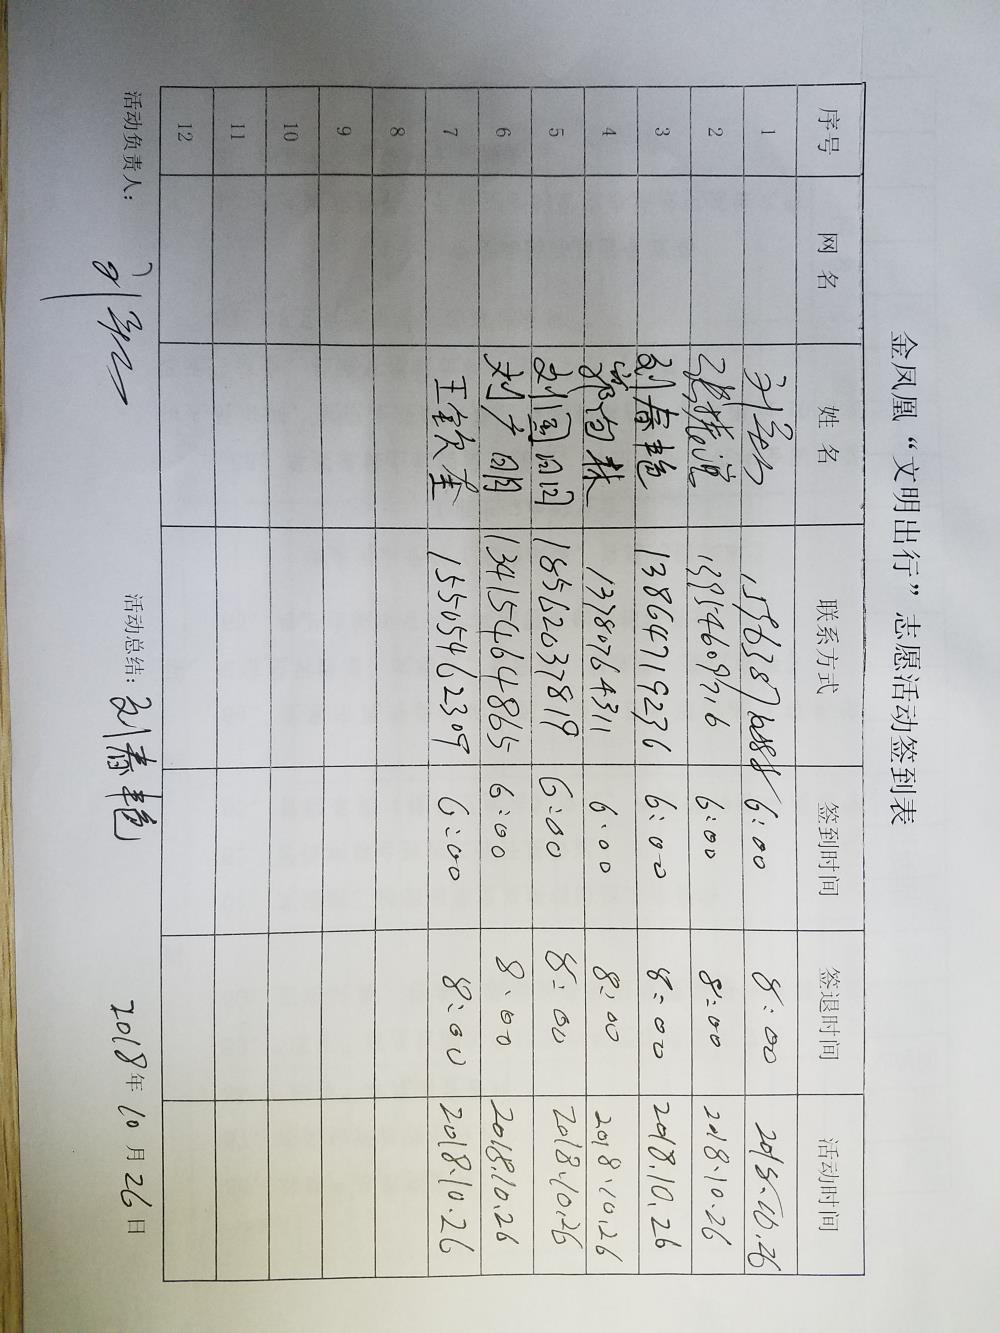 金凤凰“文明出行”志愿活动签到表
序号 网 名 姓 名 联系方式 签到时间 签退时间 活动时间
1 6:00 8:00 2018.10.26
2 13954609716 6:00 8:00 2018.10.26
3 刘春艳 13864719236 6:00 8:00 2018.10.26
4 13780764311 6:00 8:00 2018.10.26
5 18562037819 6:00 8:00 2018.10.26
6 刘少朋 13415464865 6:00 8:00 2018.10.26
7 王钦奎 15505462309 6:00 8:00 2018.10.26
8
9
10
11
12
活动负责人: 活动总结: 刘春艳 2018年10月26日